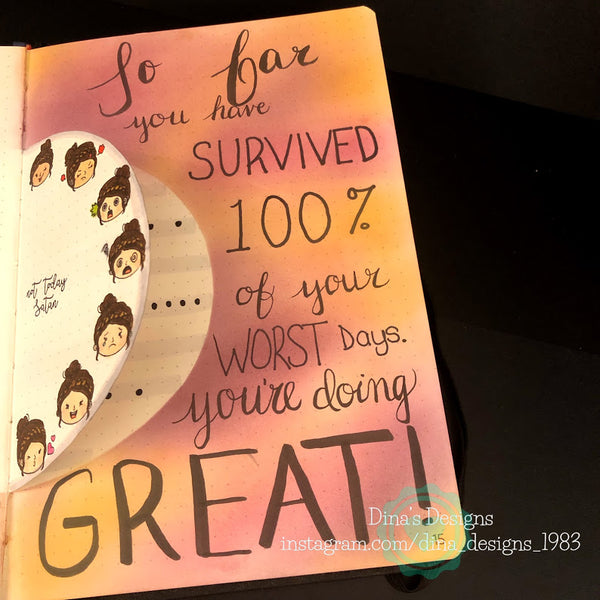 So far
you have
SURVIVED
100%
of your
WORST Days.
you're doing
GREAT!
not today
Satan
15
Dina's Designs
instagram.com/dina_designs_1983